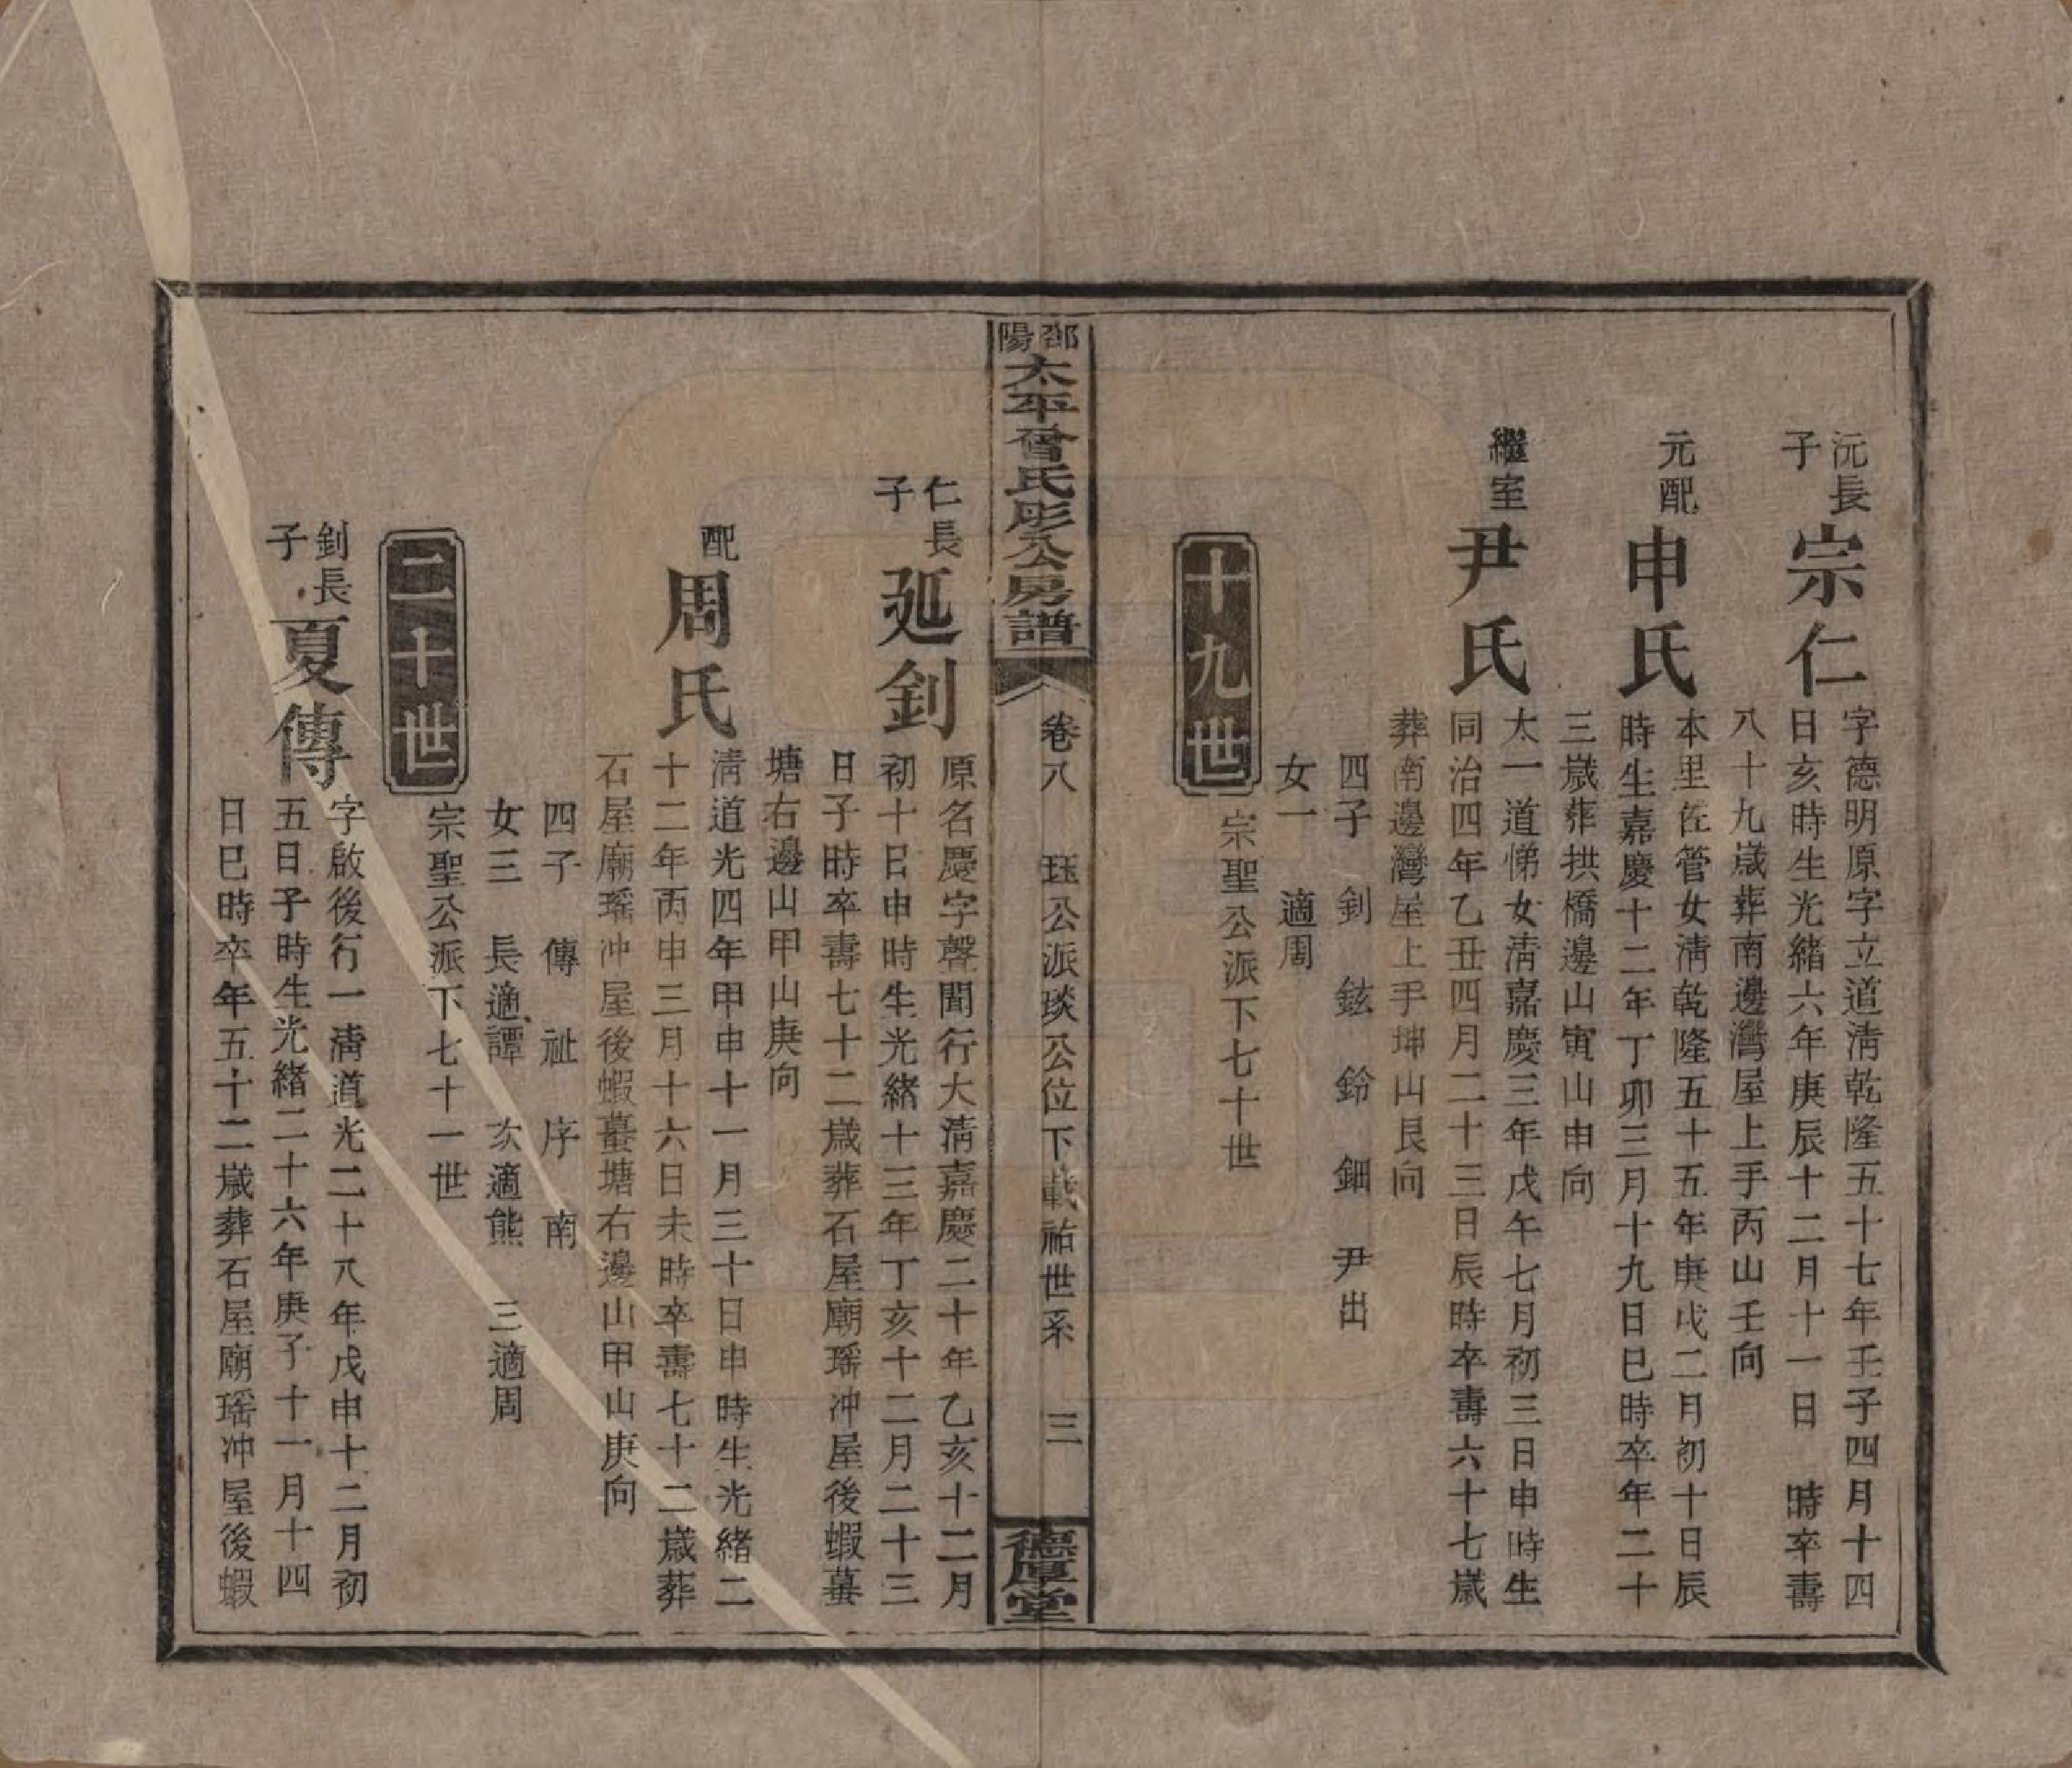 沅長子
宗仁
字德明原字立道淸乾隆五十七年壬子四月十四
日亥時生光緒六年庚辰十二月十一日　時卒壽
八十九歲葬南邊灣屋上手丙山壬向
元配
申氏
本里佐管女淸乾隆五十五年庚戌二月初十日辰
時生嘉慶十二年丁卯三月十九日巳時卒年二十
三歲葬拱橋邊山寅山申向
繼室
尹氏
太一道悌女淸嘉慶三年戊午七月初三日申時生
同治四年乙丑四月二十三日辰時卒壽六十七歲
葬南邊灣屋上手坤山艮向
四子　釗　鉉　鈴　鈿　尹出
女一　適周
十九世
宗聖公派下七十世
邵陽太平曾氏彤公房譜
卷八　珏公派琰公位下載祐世系　三
德厚堂
仁長子
延釗
原名慶字聲聞行大淸嘉慶二十年乙亥十二月
初十日申時生光緒十三年丁亥十二月二十三
日子時卒壽七十二歲葬石屋廟瑤冲屋後蝦蟇
塘右邊山甲山庚向
配
周氏
淸道光四年甲申十一月三十日申時生光緒二
十二年丙申三月十六日未時卒壽七十二歲葬
石屋廟瑤冲屋後蝦蟇塘右邊山甲山庚向
四子　傳　祉　序　南
女三　長適譚　次適熊　三適周
二十世
宗聖公派下七十一世
釗長子
夏傳
字啟後行一淸道光二十八年戊申十二月初
五日子時生光緒二十六年庚子十一月十四
日巳時卒年五十二歲葬石屋廟瑤冲屋後蝦